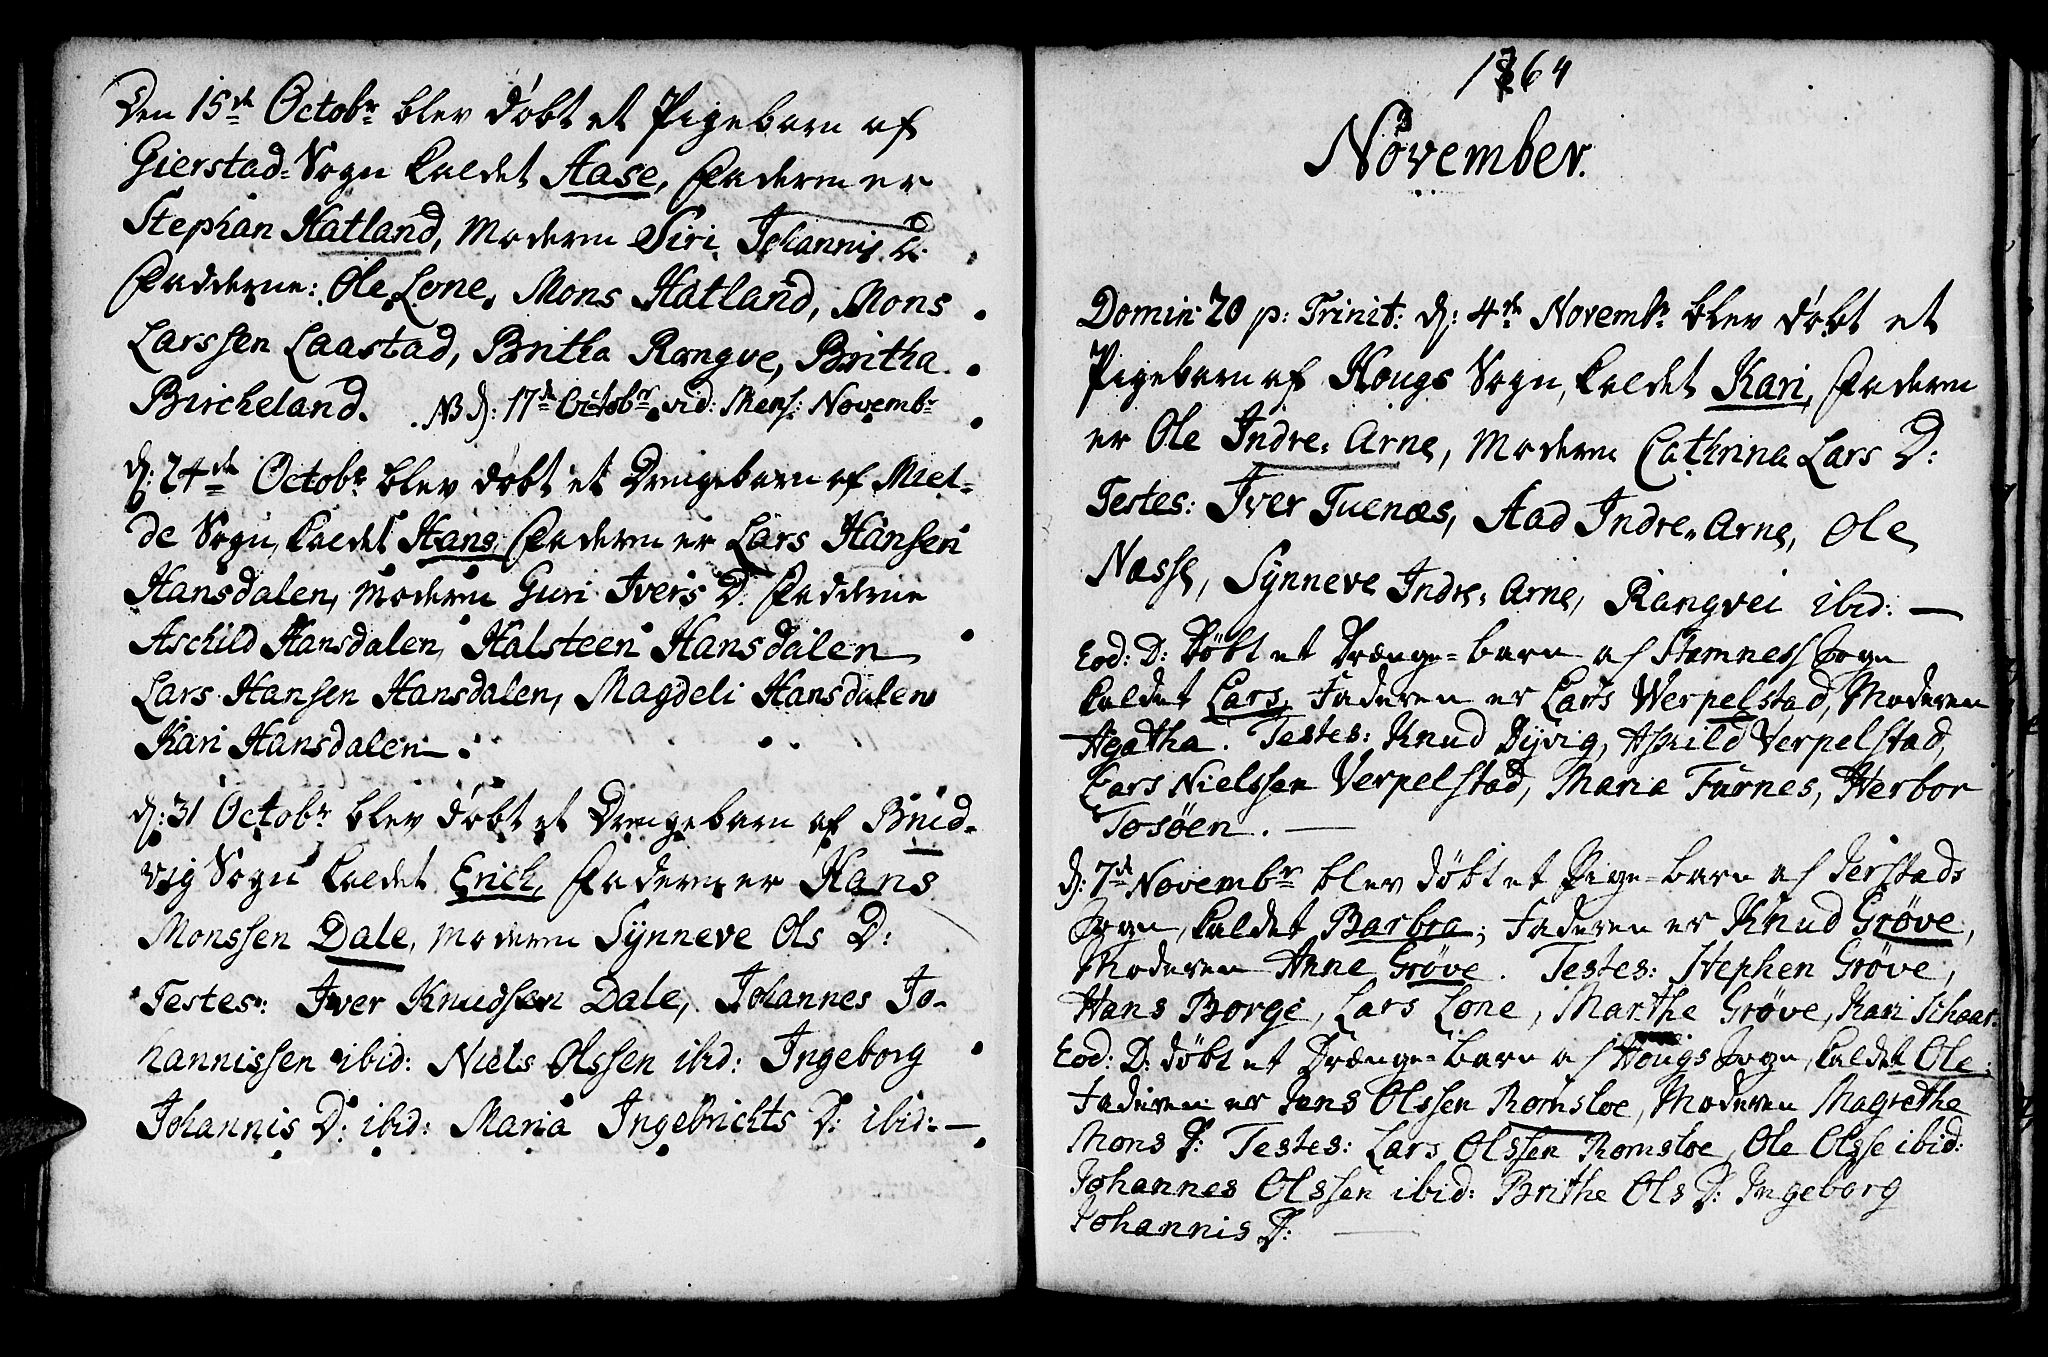 Den 15de Octobr blev døbt et Pigebarn af
Gierstad-Sogn kaldet Aase, Faderen er
Stephan Hatland, Moderen Siri Johannis D:
Fadderne: Ole Lone, Mons Hatland, Mons
Larssen Laastad, Britha Rangve, Britha
Bircheland. NB d: 17de Octobr vid: Mens: Novembr
d: 24de Octobr blev døbt et Drengebarn af Miel-
de Sogn, kaldet Hans, Faderen er Lars Hansen
Hansdalen, Moderen Guri Ivers D. Fadderne
Aschild Hansdalen, Halsteen Hansdalen
Lars Hansen Hansdalen, Magdeli Hansdalen
Kari Hansdalen.
d: 31 Octobr blev døbt et Drengebarn af Brud-
vig Sogn kaldet Erich, Faderen er Hans
Monssen Dale, Moderen Synneve Ols D:
Testes: Iver Knudsen Dale, Johannes Jo-
hannissen ibid: Niels Olssen ibid: Ingeborg
Johannis D: ibid: Maria Ingebrichts D: ibid: —
1764
November.
Domin: 20 p: Trinit: d: 4de Novembr blev døbt et
Pigebarn af Hougs Sogn, kaldet Kari, Faderen
er Ole Indre-Arne, Moderen Cathrina Lars D:
Testes: Iver Tuenæs, Aad Indre-Arne, Ole
Næsse, Synneve Indre-Arne, Rangvei ibid: —
Eod: D: Døbt et Drænge-barn af Stamness Sogn
kaldet Lars, Faderen er Lars Verpelstad, Moderen
Agatha. Testes: Knud Dyvig, Askild Verpelstad,
Lars Nielssen Verpelstad, Maria Furnes, Herbor
Tosøen. —
d: 7de Novembr blev døbt et Pige-barn af Jerstads
Sogn, kaldet Barbra; Faderen er Knud Grøve,
Moderen Anne Grøve. Testes: Stephen Grøve,
Hans Borge, Lars Lone, Marthe Grøve, Kari Schaar:
Eod: D: døbt et Drænge-barn af Hougs Sogn, kaldet Ole;
Faderen er Jens Olssen Romsloe, Moderen Magrethe
Mons D: Testes: Lars Olssen Romsloe, Ole Olsse ibid:
Johannes Olssen ibid: Brithe Ols D: Ingeborg
Johannis D: —